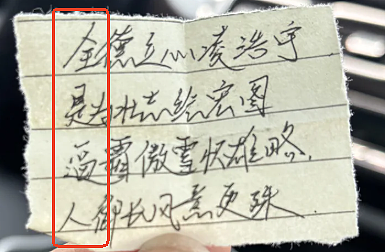 全德立心凌浩宇
是为壮志绘宏图
逼霜傲雪怀雄略.
人御长风意更殊.